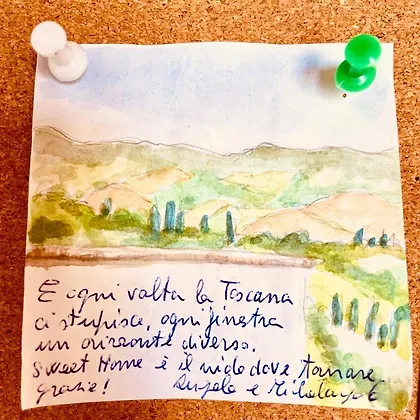 E ogni volta la Toscana
ci stupisce, ogni finestra
un orizzonte diverso.
Sweet Home è il nido dove tornare,
grazie! Angela e Michelangelo